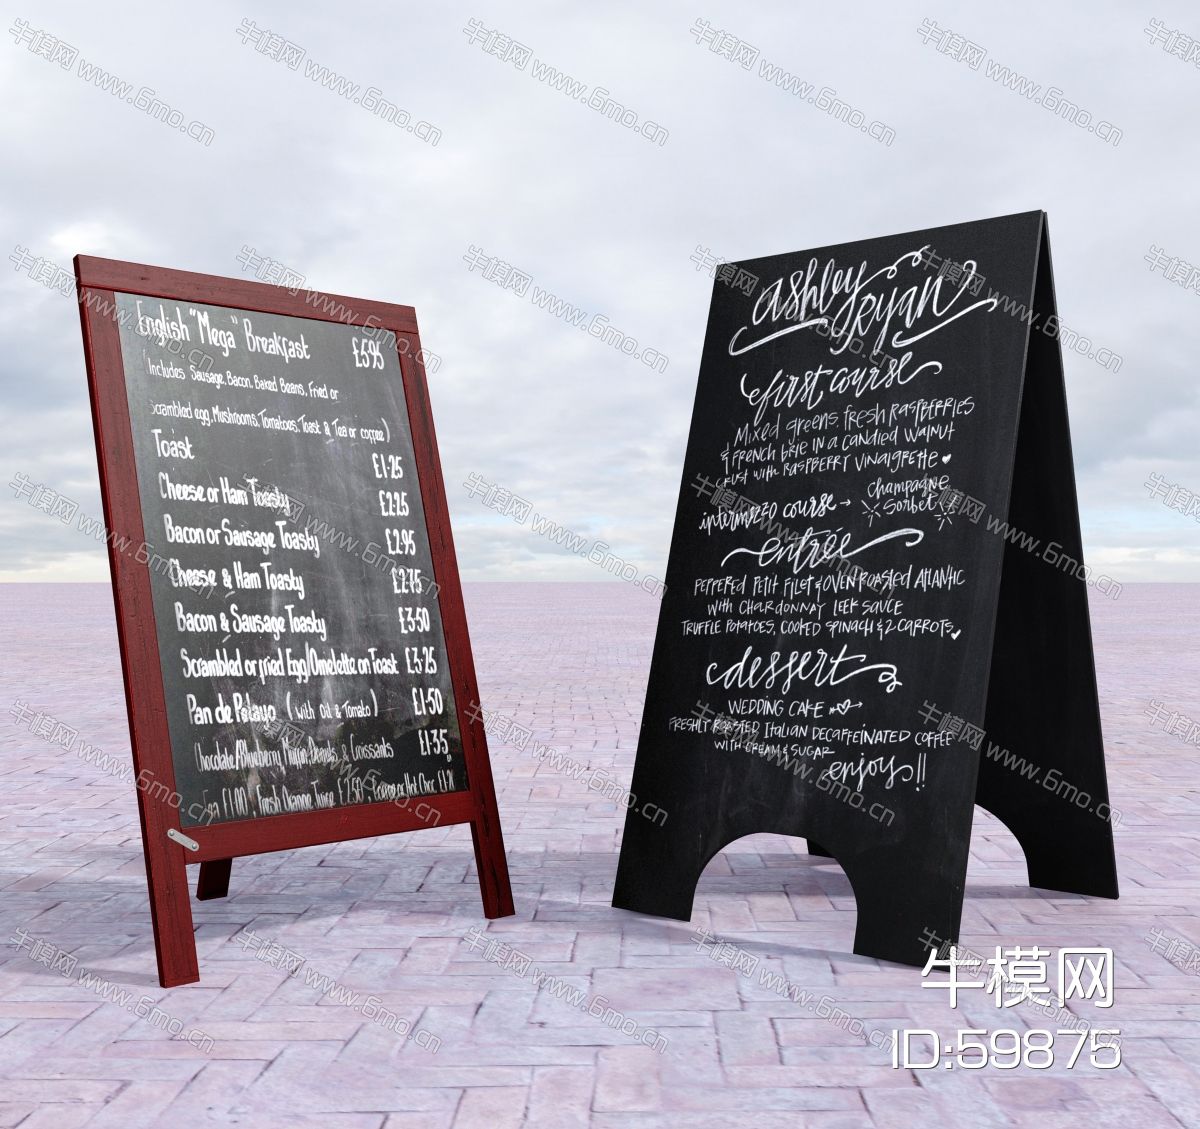 English "Mega" Breakfast £5.95
(Includes Sausage, Bacon, Baked Beans, Fried or
Scrambled egg, Mushrooms, Tomatoes, Toast & Tea or coffee)
Toast £1·25
Cheese or Ham Toasty £2·25
Bacon or Sausage Toasty £2·95
Cheese & Ham Toasty £2·75
Bacon & Sausage Toasty £3·50
Scrambled or fried Egg/Omelette on Toast £3·25
Pan de Palayo (with Oil & Tomato) £1·50
Chocolate/Blueberry Muffin Donuts & Croissants £1·35
Tea £1.00, Fresh Orange Juice £2.50, or Hot Choc
ashley
Ryan
first course
Mixed greens, fresh raspberries
& french brie in a candied walnut
crust with raspberry vinaigrette
intermezzo course → champagne sorbet
entrée
peppered petit filet & oven roasted atlantic
with chardonnay leek sauce
truffle potatoes, cooked spinach & 2 carrots
dessert
wedding cake
freshly roasted italian decaffeinated coffee
with cream & sugar
enjoy!!
牛模网
ID:59875
牛模网 www.6mo.cn